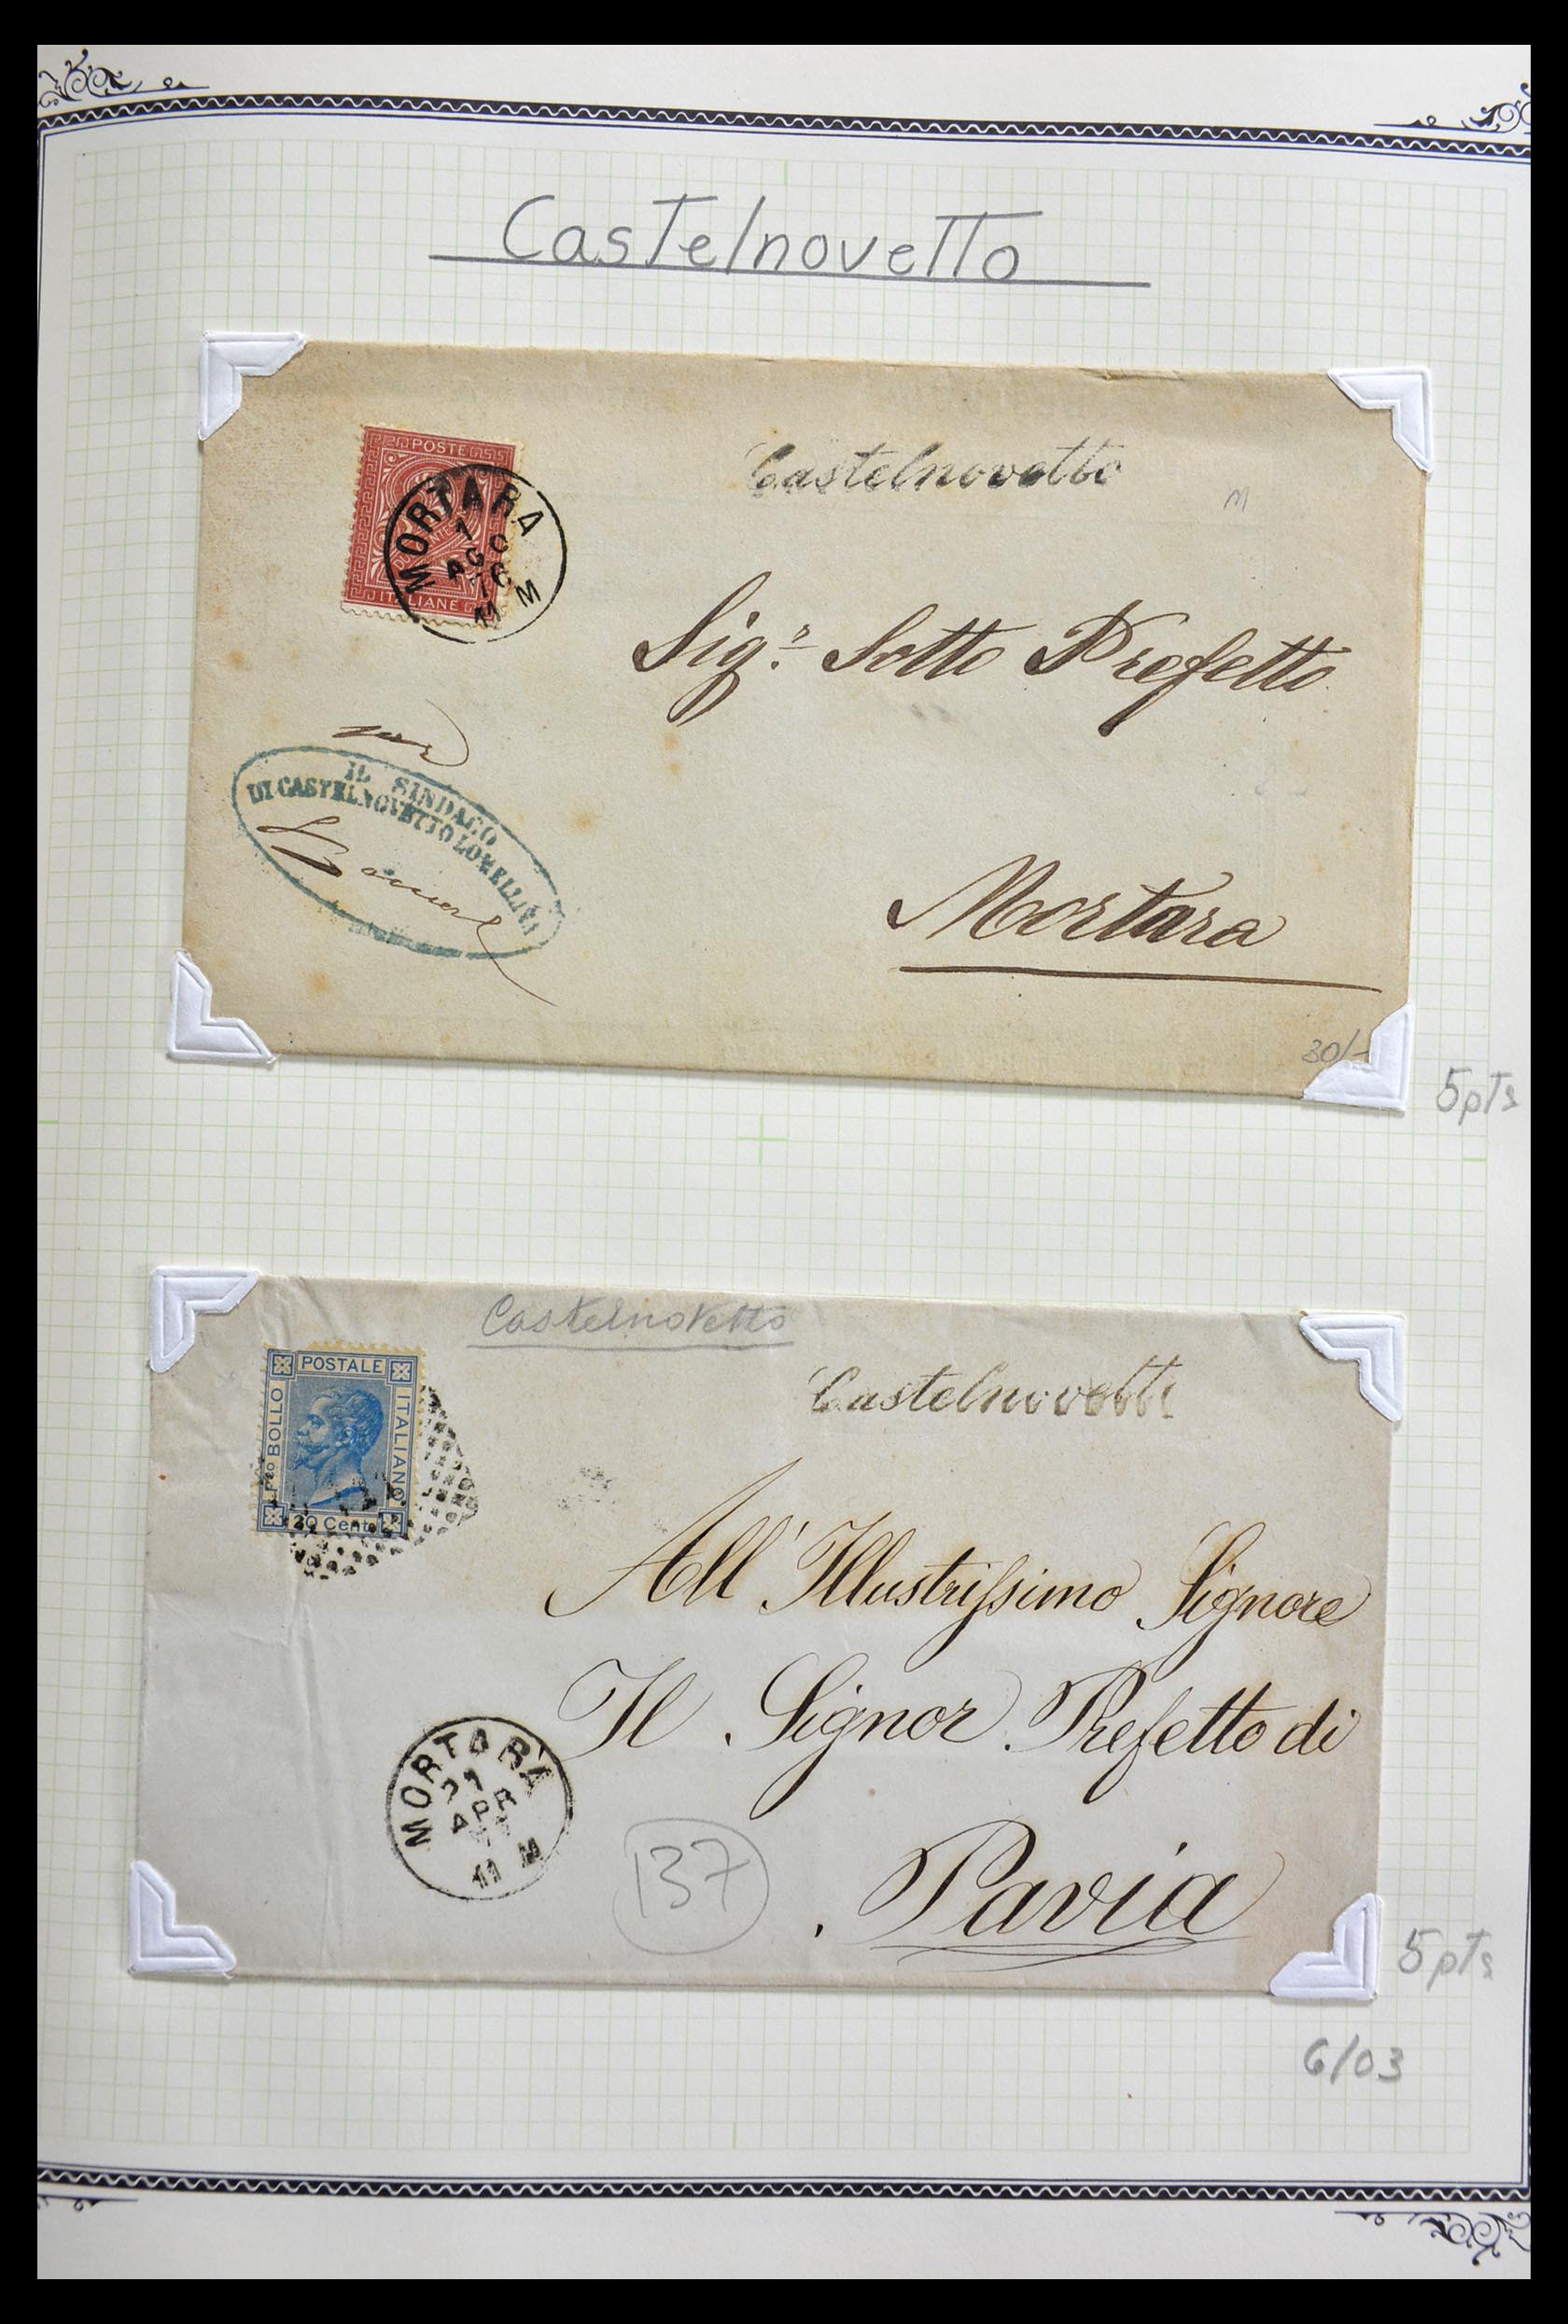 Castelnovetto
POSTE
ITALIANE
MORTARA
AGO
76
M
Castelnovetto
M
Sigr. Sotto Prefetto
IL SINDACO
DI CASTELNOVETTO LOMELLINA
Mortara
30/-
5pts
Castelnovetto
POSTALE
Fco BOLLO
ITALIANO
20 Cent
Castelnovetto
All'Illustrissimo Signore
Il Signor Prefetto di
MORTARA
APR
M
137
Pavia
5pts
6/03